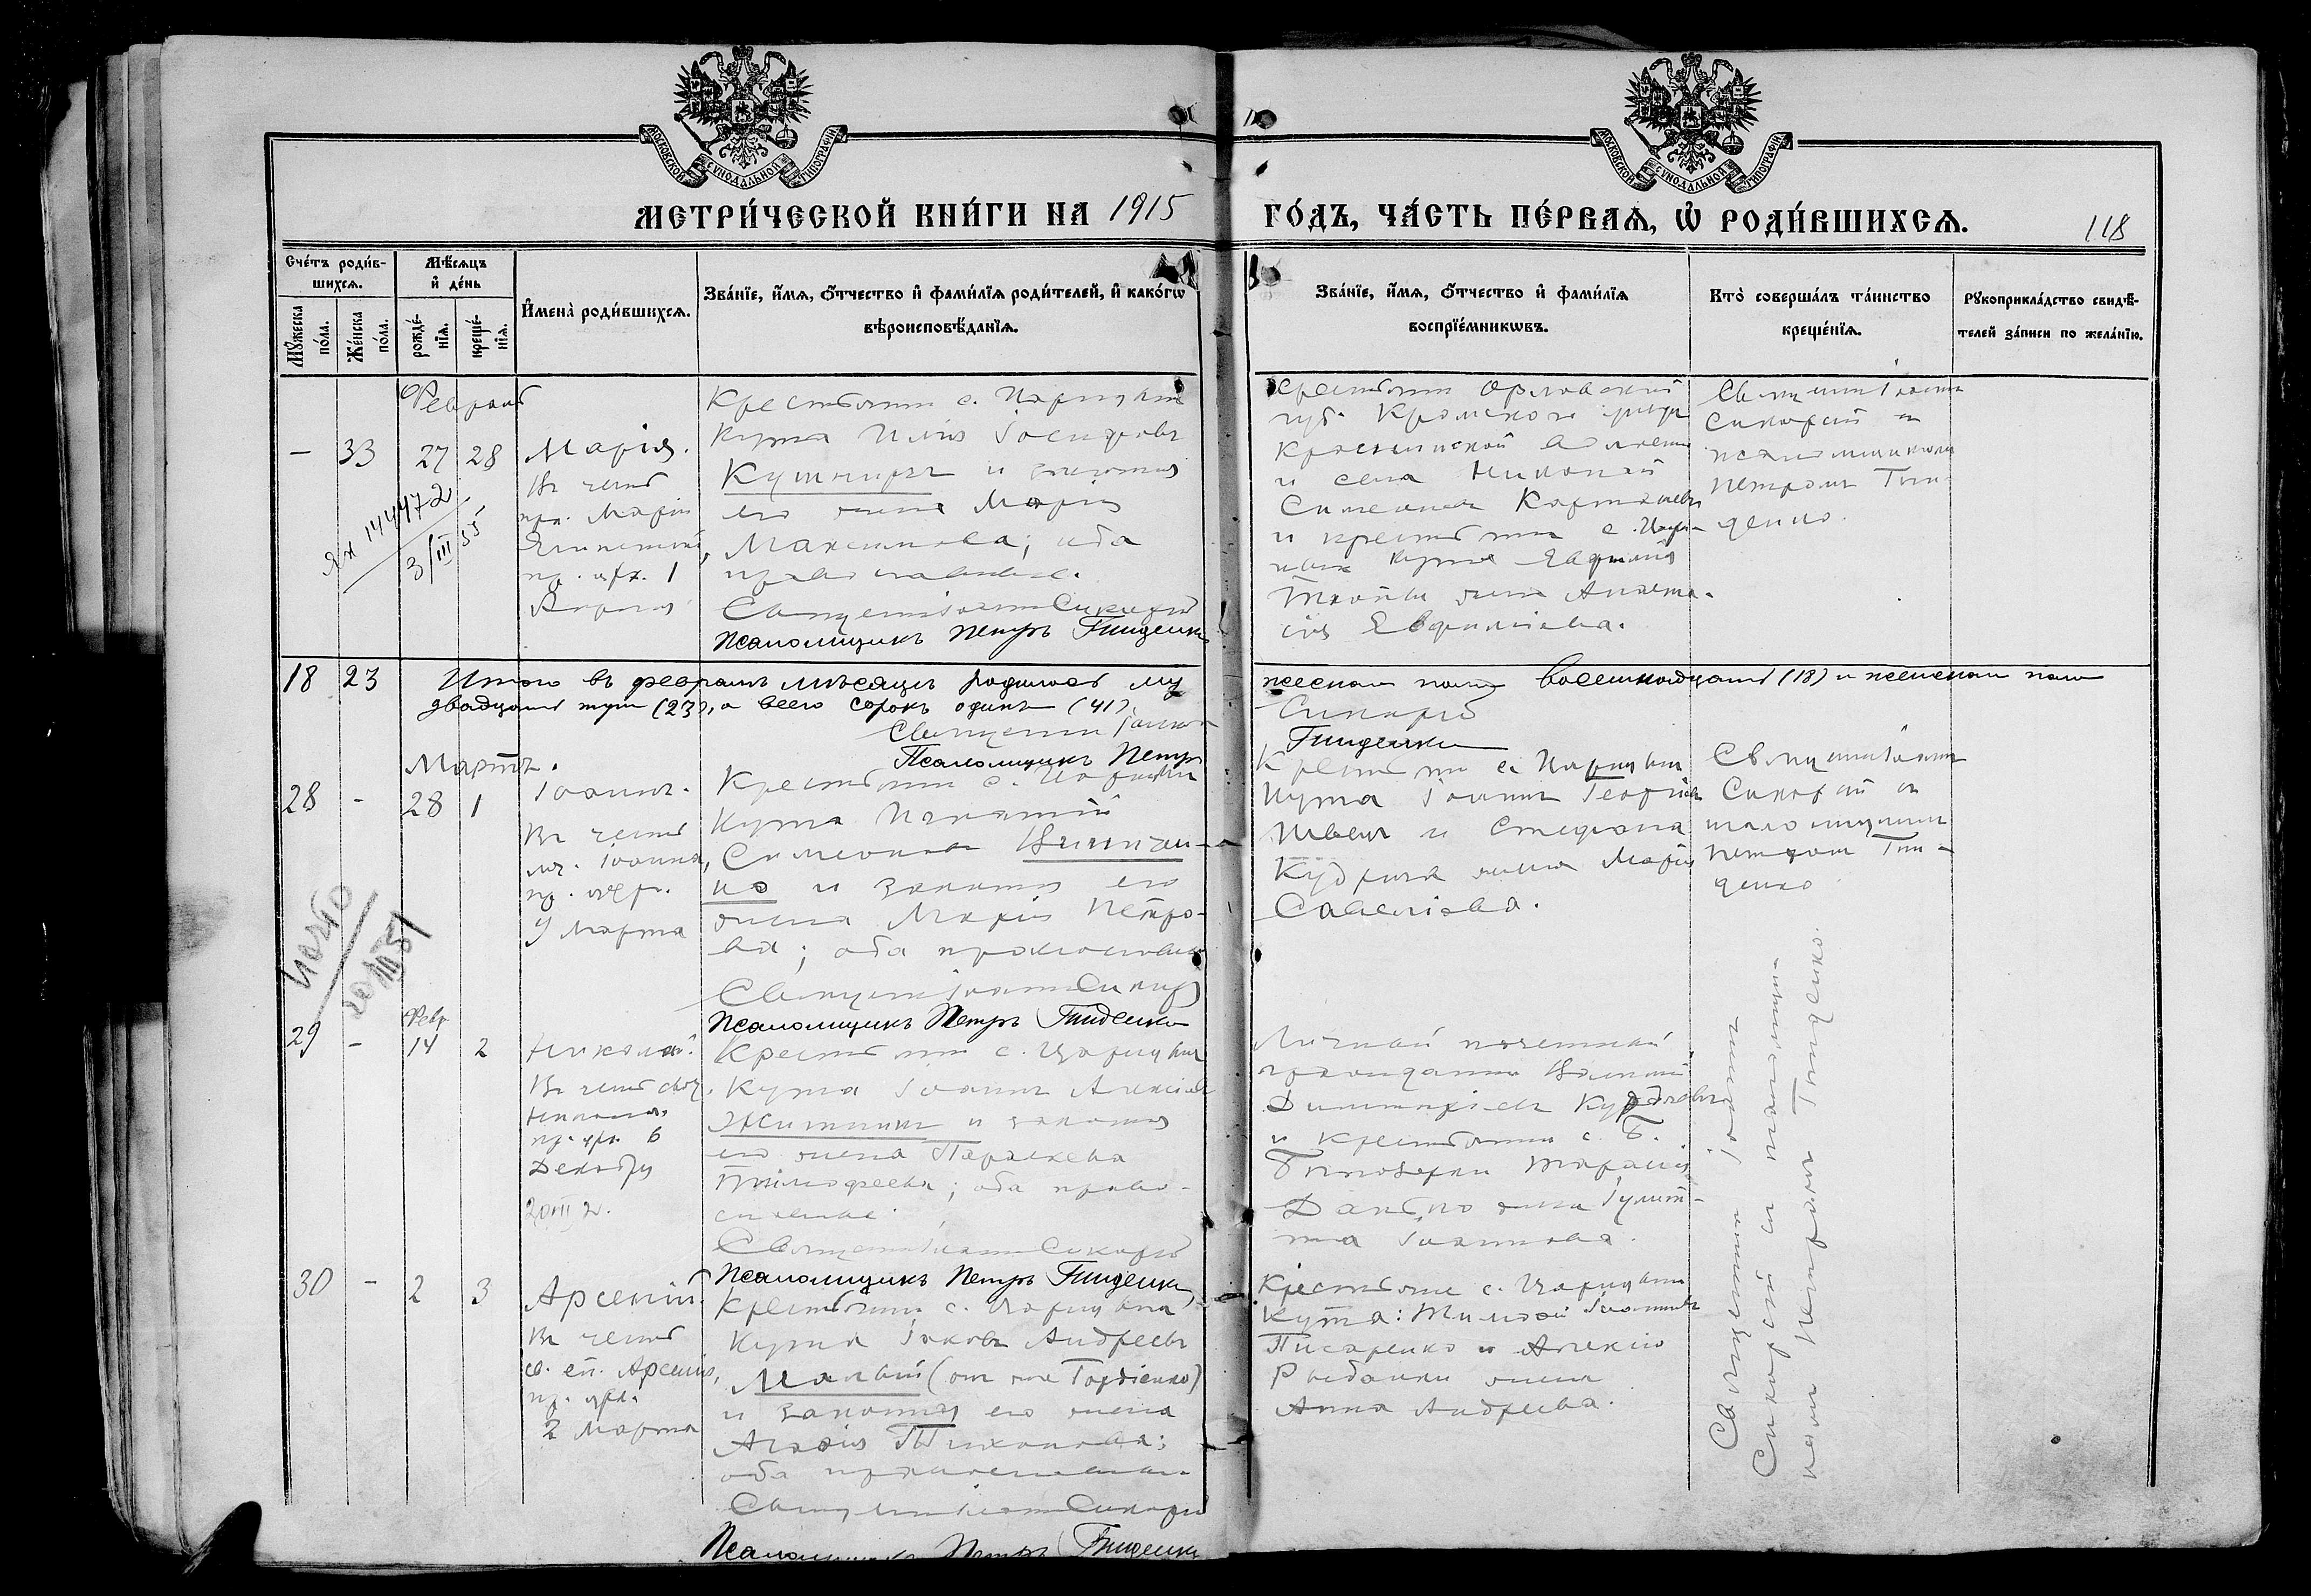 МОСКОВСКОЙ СУНОДАЛЬНОЙ ТИПОГРАФІИ
МОСКОВСКОЙ СУНОДАЛЬНОЙ ТИПОГРАФІИ
МЕТРИ́ЧЕСКОЙ КНИ́ГИ НА 1915
ГО́ДЪ, ЧА́СТЬ ПЕ́РВАѦ, Ѽ РОДИ́ВШИХСѦ.
118
Сче́тъ роди́в-
шихсѧ.
Мѣ́сѧцъ
и҆ де́нь
Мꙋ́жеска
по́ла.
Же́нска
по́ла.
рожде́-
нїѧ.
креще́-
нїѧ.
И҆мена̀ роди́вшихсѧ.
Зва́нїе, и҆́мѧ, ѻ҆́тчество и҆ фами́лїѧ роди́телей, и҆ како́гѡ
вѣроисповѣ́данїѧ.
Зва́нїе, и҆́мѧ, ѻ҆́тчество и҆ фами́лїѧ
воспрїе́мникѡвъ.
Кто̀ соверша́лъ та́инство
креще́нїѧ.
Рꙋкоприкла́дство свидѣ́-
телей за́писи по жела́нїю.
Февраль
- 33 27 28
Марія.
Въ честь
пр. Маріи
Египетской,
пр. црк. 1
Апрѣля
144472
3/III 55
Крестьянинъ с. Царицына
Кута Илія Іосифовъ
Кушниръ и законная
его жена Марія
Максимова; оба
православные.
Священ Іоаннъ Сикорскій
Псаломщикъ Петръ Гниденко
Крестьянинъ Орловской
губ. Кромского уѣзда
волости
и села Николай
Симеоновъ
и крестьянина с. Цари-
цына Кута Евфимія
жена Анаста-
сія Евфиміева.
Священник Іоаннъ
Сикорскій съ
псаломщикомъ
Петромъ Гни-
денко.
18 23 Итого въ февралѣ мѣсяцѣ родилось му
жескаго пола восемнадцать (18) и женскаго пола
двадцать три (23), а всего сорокъ одинъ (41).
Священник Іоаннъ
Сикорскій
Псаломщикъ Петръ
Гниденко
Мартъ.
28 - 28 1
Іоаннъ.
Въ честь
Іоанна,
пр. церк.
9 Марта
Крестьянинъ с. Царицына
Кута Игнатій
Симеоновъ
но и законная его
жена Марія Петро-
ва; оба православные
Священ Іоаннъ Сикорскій
Псаломщикъ Петръ Гниденко
Крестьянинъ с. Царицына
Кута Іоаннъ Георгіевъ
Швецъ и Стефана
Кудрича жена Марія
Савеліева.
Священник Іоаннъ
Сикорскій съ
псаломщикомъ
Петромъ Гни-
денко
29 - Февр 14 2
Николай.
Въ честь свят.
Николая,
пр. црк. 6
Декабря
Крестьянинъ с. Царицына
Кута Іоаннъ Алексіевъ
Житникъ и законная
его жена Параскева
Тимофеева; оба право-
славные.
Священ Іоаннъ Сикорскій
Псаломщикъ Петръ Гниденко
Личный почетный
гражданинъ Василій
Димитріевъ
и крестьянина с. Б.
Бѣлозерки Тарасія
Данько жена Іулит-
та Іоаннова.
30 - 2 3
Арсеній.
Въ честь
св. еп. Арсенія,
пр. црк.
2 Марта
Крестьянинъ с. Царицына
Кута Іаковъ Андреевъ
Малый (онъ же Гордіенко)
и законная его жена
Агафія Тихонова;
оба православные
Священ Іоаннъ Сикорскій
Псаломщикъ Петръ Гниденко
Крестьяне с. Царицына
Кута: Тимофей Іоанновъ
Писаренко и Алексія
Рыбалки жена
Анна Андреева.
Священникъ Іоаннъ
Сикорскій съ псаломщи-
комъ Петромъ Гниденко.